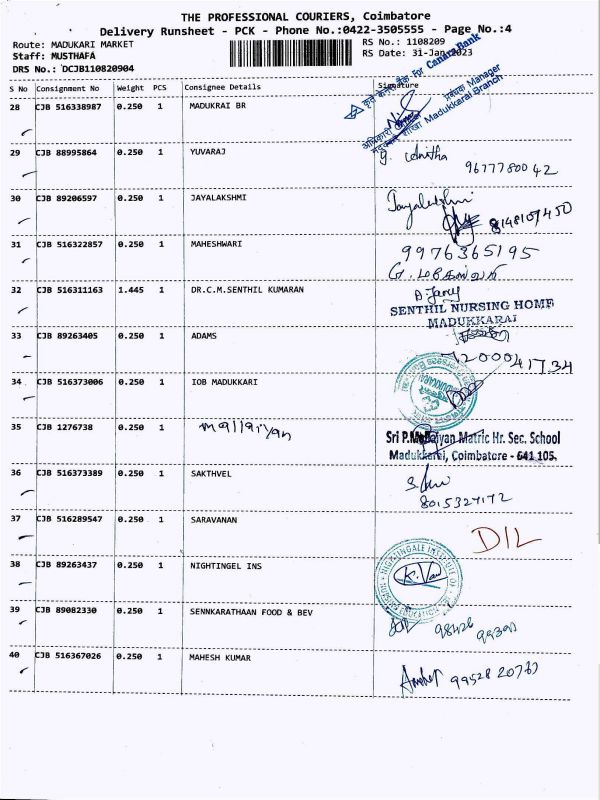 THE PROFESSIONAL COURIERS, Coimbatore
Delivery Runsheet - PCK - Phone No.:0422-3505555 - Page No.:4
Route: MADUKARI MARKET
Staff: MUSTHAFA
DRS No.: DCJB110820904
RS No.: 1108209
RS Date: 31-Jan-2023
S No Consignment No Weight PCS Consignee Details Signature
28 CJB 516338987 0.250 1 MADUKRAI BR
For Canara Bank
Madukkarai Branch
29 CJB 88995864 0.250 1 YUVARAJ g. Anitha
9677780042
30 CJB 89206597 0.250 1 JAYALAKSHMI Jayalakshmi
8148109450
31 CJB 516322857 0.250 1 MAHESHWARI 9976365195
32 CJB 516311163 1.445 1 DR.C.M.SENTHIL KUMARAN
SENTHIL NURSING HOME
MADUKKARAI
33 CJB 89263405 0.250 1 ADAMS
7200041734
34 CJB 516373006 0.250 1 IOB MADUKKARI
35 CJB 1276738 0.250 1 mallaiyan
Sri P.Mallaiyan Matric Hr. Sec. School
Madukkarei, Coimbatore - 641 105.
36 CJB 516373389 0.250 1 SAKTHVEL
8015327172
37 CJB 516289547 0.250 1 SARAVANAN DIL
38 CJB 89263437 0.250 1 NIGHTINGEL INS
NIGHTINGALE INSTITUTE OF EDUCATION
K.Van
39 CJB 89082330 0.250 1 SENNKARATHAAN FOOD & BEV
98426
40 CJB 516367026 0.250 1 MAHESH KUMAR
99528 20763